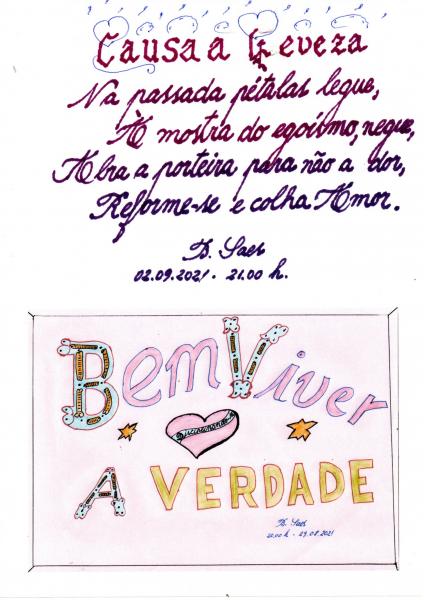 Causa a Leveza
Na passada pétalas legue,
A mostra do egoísmo, negue,
Abra a porteira para não a dor,
Reforme-se e colha Amor.
Saes
02.09.2021 - 21.00 h.
Bem Viver
A VERDADE
Saes
22.00 h - 29.08.2021